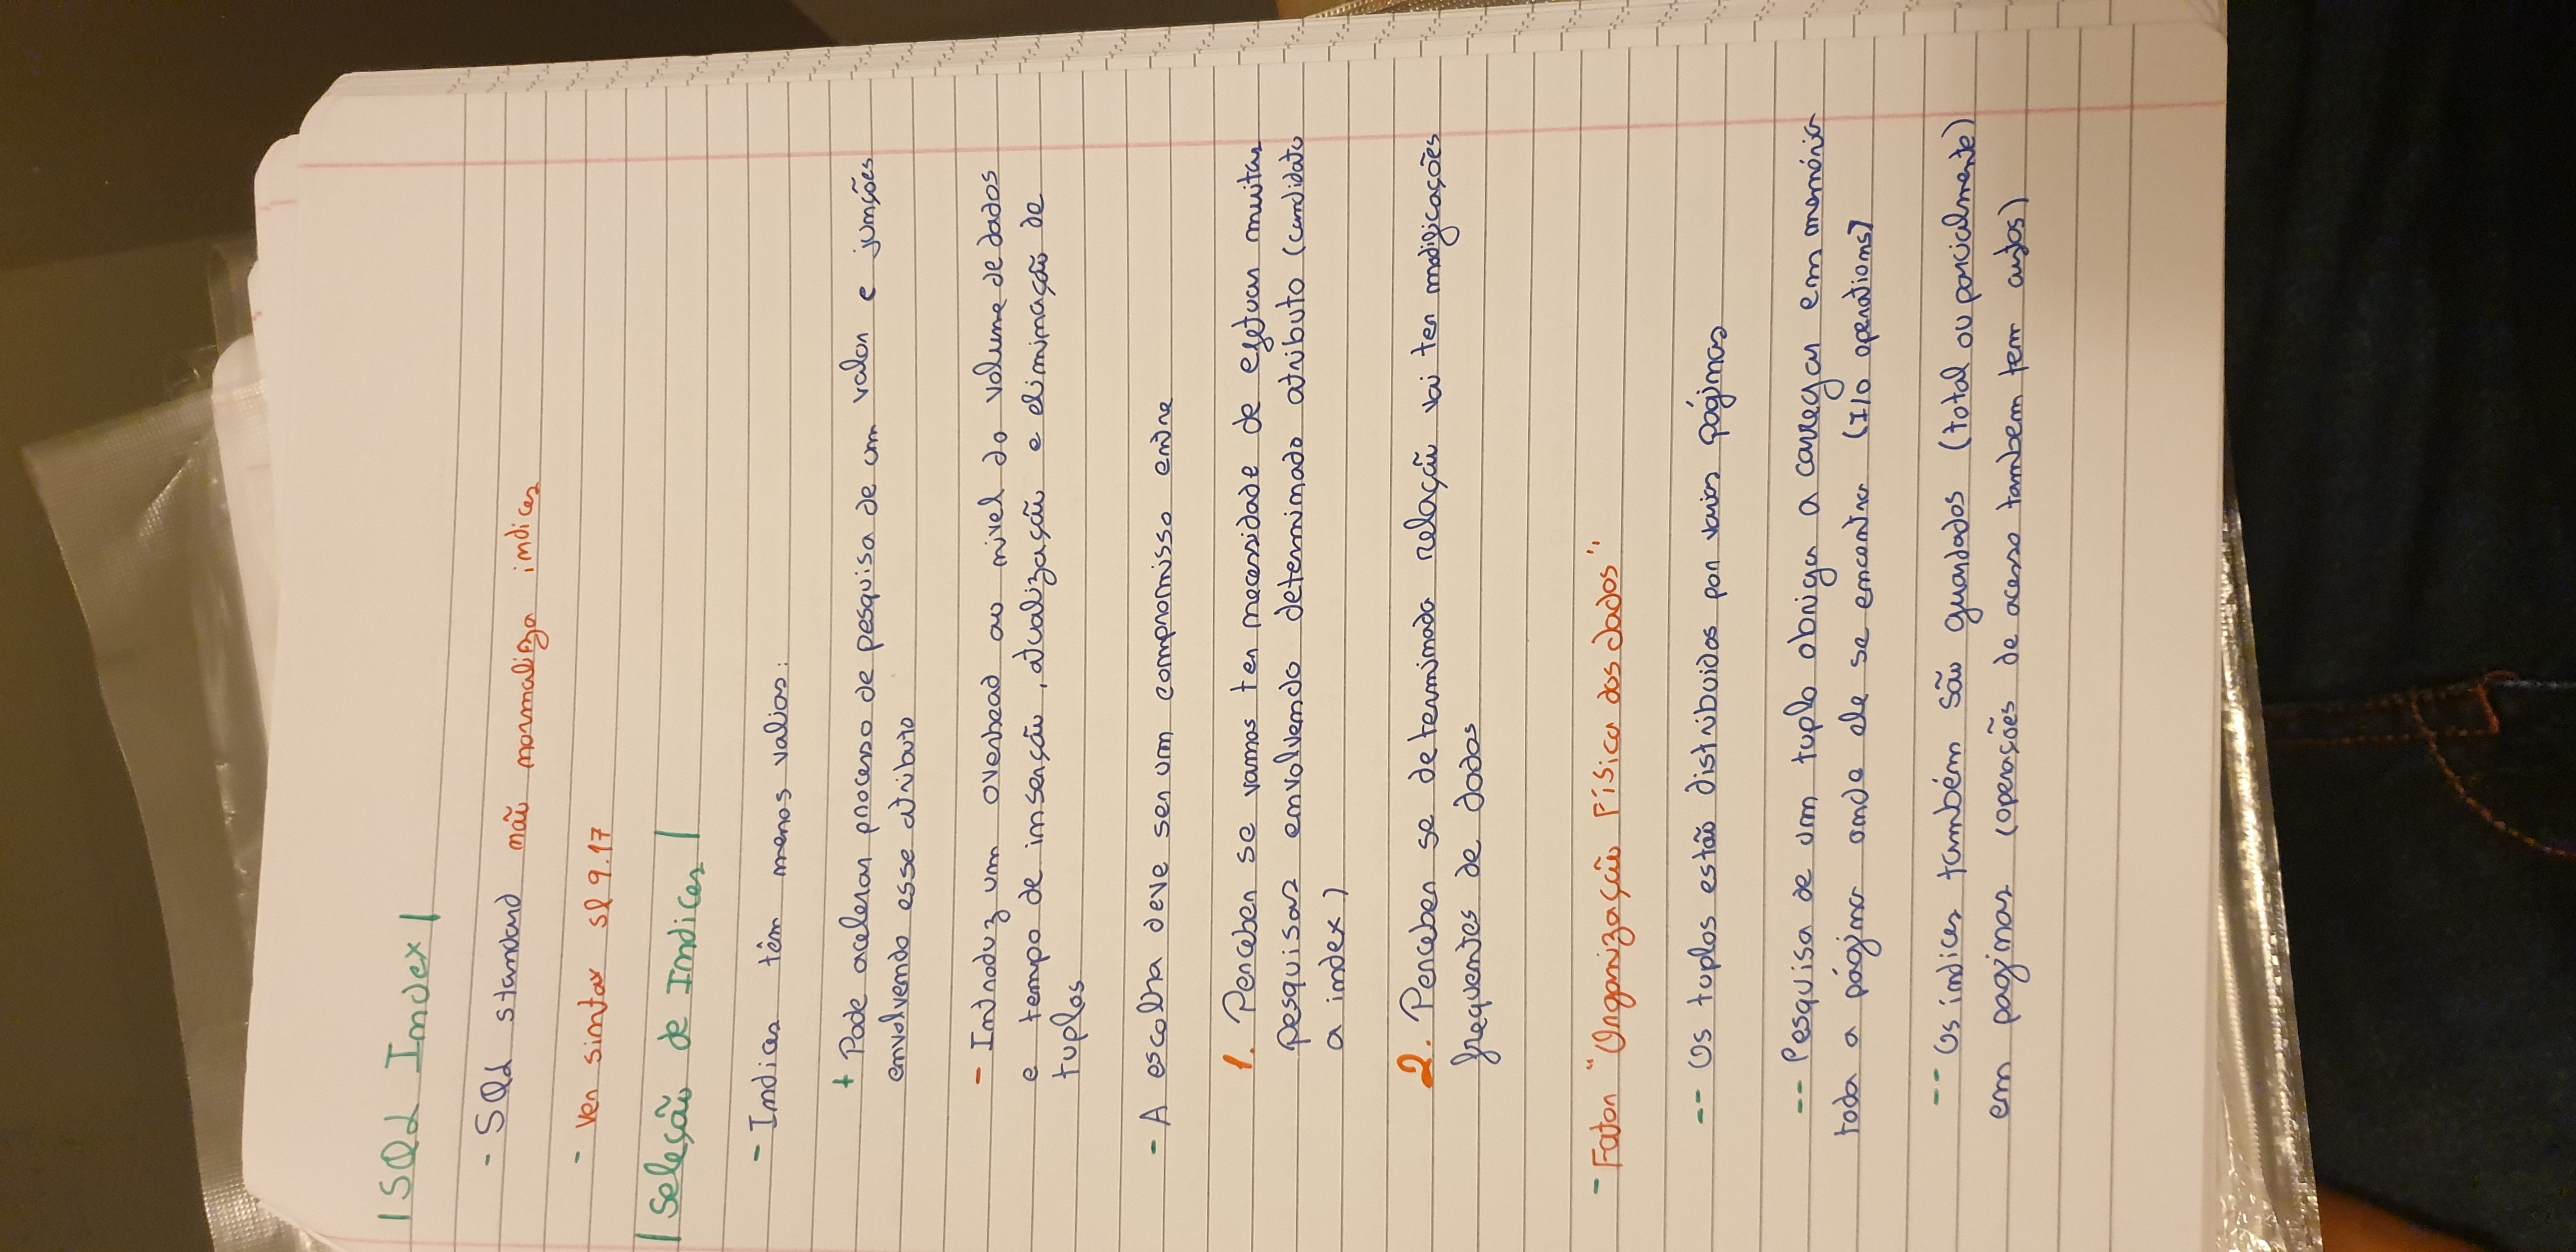 |SQL Index|
- SQL standard não normaliza indices
- Ver sintax sl 9.17
|Seleção de Indices|
- Indices têm menos valias:
+ Pode acelerar processo de pesquisa de um valor e junções
envolvendo esse atributo
- Introduz um overhead ao nivel do volume de dados
e tempo de inserção, atualização e eliminação de
tuplos
- A escolha deve ser um compromisso entre
1. Perceber se vamos ter necessidade de efetuar muitas
pesquisas envolvendo determinado atributo (candidato
a index)
2. Perceber se determinada relação vai ter modificações
frequentes de dados
- Fator "Organização Física dos dados"
-- Os tuplos estão distribuidos por varias páginas
-- Pesquisa de um tuplo obriga a carregar em memória
toda a página onde ele se encontra (I/O operations)
-- Os indices também são guardados (total ou parcialmente)
em paginas (operações de acesso tambem tem custos)